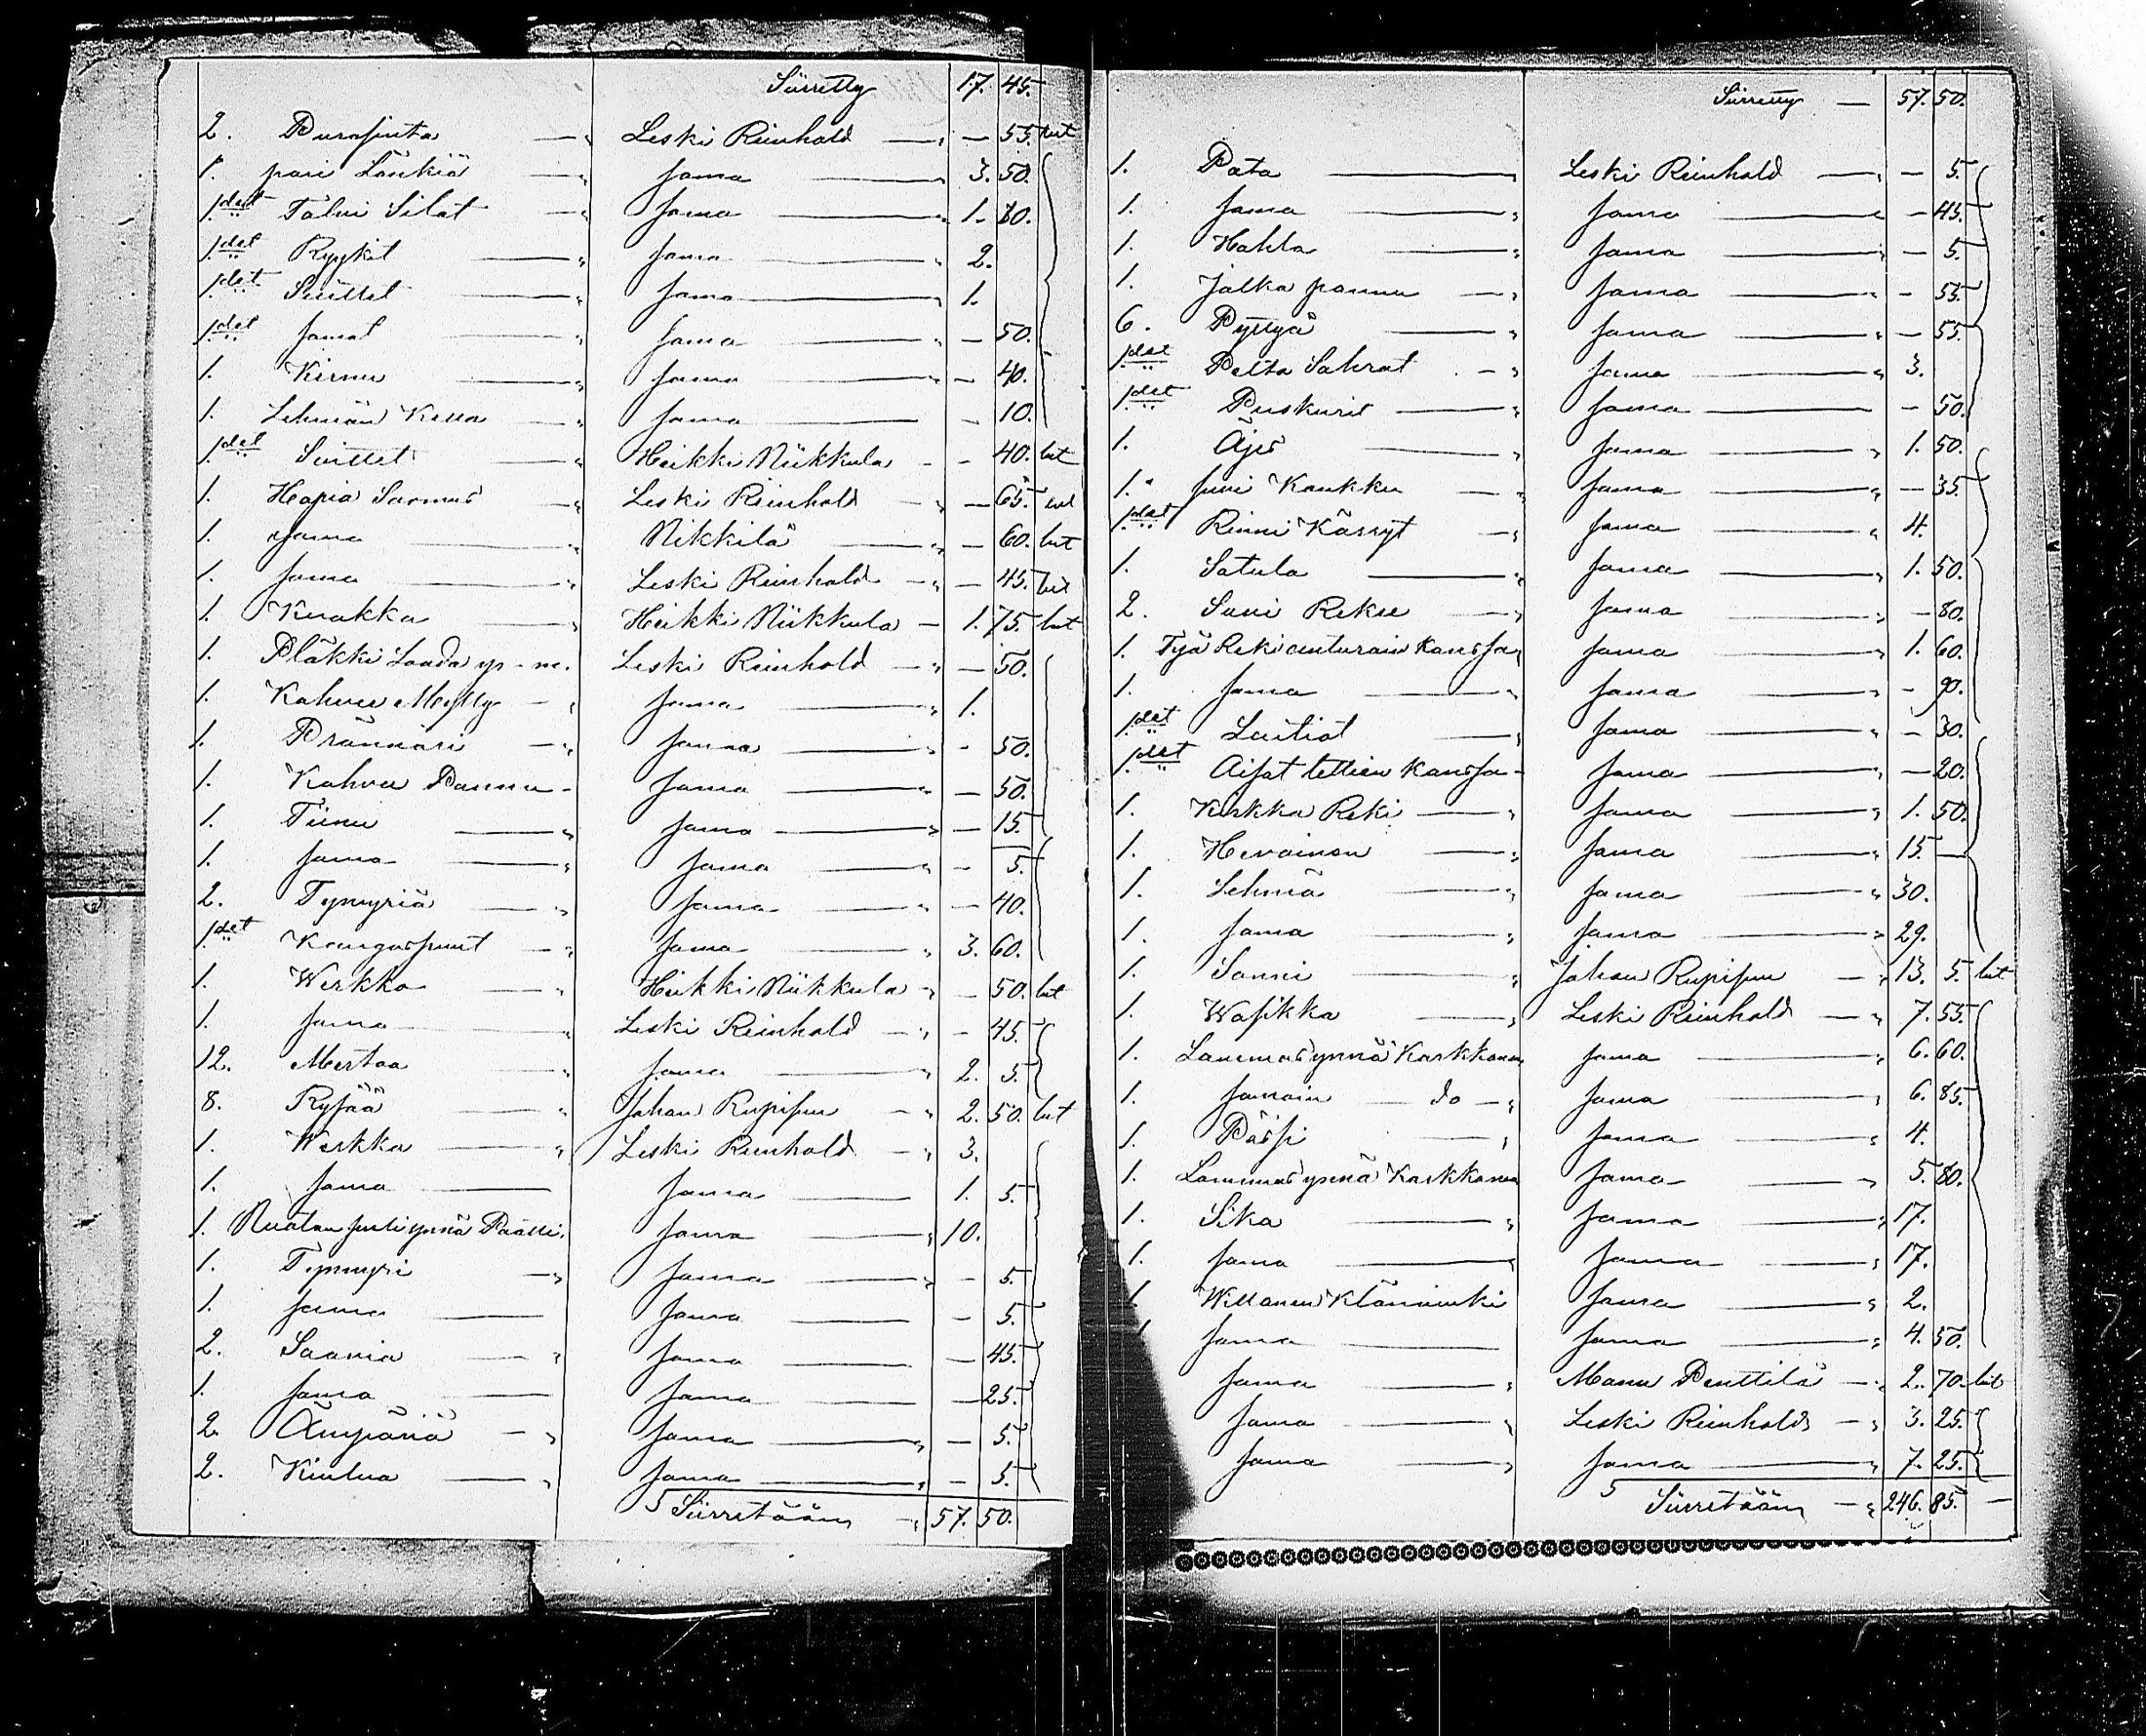 Siirretty 17. 45.
2. PuraSinta — Leski Reinhold — 55. lut
1. pari Länkiä — Sama — 3. 50.
1. det Talui Silat — Sama — 1. 80.
1. det Ryykit — Sama — 2.
1. det Suittet — Sama — 1.
1. det Samat — Sama — 50.
1. Kirnu — Sama — 40.
1. Lehmän Kello — Sama — 10.
1. det Suittet — Heikki Niikkula — 40. lut
1. Hopia Sormus — Leski Reinhold — 65. lut
1. Sama — Nikkilä — 60. lut
1. Sama — Leski Reinhold — 45. lut
1. Kuokka — Heikki Niikkula — 1. 75. lut
1. Pläkki Laada ys-m. Leski Reinhold — 50.
1. Kahvee Mylly — Sama — 1.
1. Prännäri — Sama — 50.
1. Kahvee Pannu — Sama — 50.
1. Tiinu — Sama — 15.
1. Sama — Sama — 5.
2. Tynnyriä — Sama — 40.
1. det KangasSuut — Sama — 3. 60.
1. Werkko — Heikki Niikkula — 50. lut
1. Sama — Leski Reinhold — 45.
12. Mertaa — Sama — 2. 5.
8. Rysää — Johan Rupisuu — 2. 50. lut
1. Werkko — Leski Reinhold — 3.
1. Sama — Sama — 1. 5.
1. Nuotan ynnä Sama — 10.
1. Tynnyri — Sama — 5.
1. Sama — Sama — 5.
2. Saavia — Sama — 45.
1. Sama — Sama — 25.
2. Ämpäriä — Sama — 5.
2. Kiulua — Sama — 5.
Siirretään — 57. 50.
Siirretty — 57. 50.
1. Pata — Leski Reinhold — 5.
1. Sama — Sama — 45.
1. Hahla — Sama — 5.
1. Jalka pannu — Sama — 55.
6. Pyttyä — Sama — 55.
1. det Pelto Sahrat — Sama — 3.
1. det Puskurit — Sama — 50.
1. Äjes — Sama — 1. 50.
1. Suui Koukku — Sama — 35.
1. det Rinni Kässyt — Sama — 4.
1. Satula — Sama — 1. 50.
2. Suui Rekee — Sama — 80.
1. Työ Reki anturain KansSa Sama — 1. 60.
1. Sama — Sama — 90.
1. det Luitiat — Sama — 30.
1. det Aisat lettien KansSa — Sama — 20.
1. Kirkko Reki — Sama — 1. 50.
1. Hevoinen — Sama — 15. —
1. Lehmä — Sama — 30.
1. Sama — Sama — 29.
1. Sonni — Johan Rupisuu — 13. 5. lut
1. Wasikka — Leski Reinhold — 7. 55.
1. Lammas ynnä Karkkonen Sama — 6. 60.
1. Samoin — do — Sama — 6. 85.
1. Pässi — Sama — 4.
1. Lammas ynnä Karkkonen Sama — 5. 80.
1. Sika — Sama — 17.
1. Sama — Sama — 17.
1. Willanen Klänninki Sama — 2.
1 Sama — Sama — 4. 50.
Sama — Manu Penttilä — 2. 70. lut
Sama — Leski Reinhold — 3. 25.
Sama — Sama — 7. 25.
Siirretään — 246. 85. —